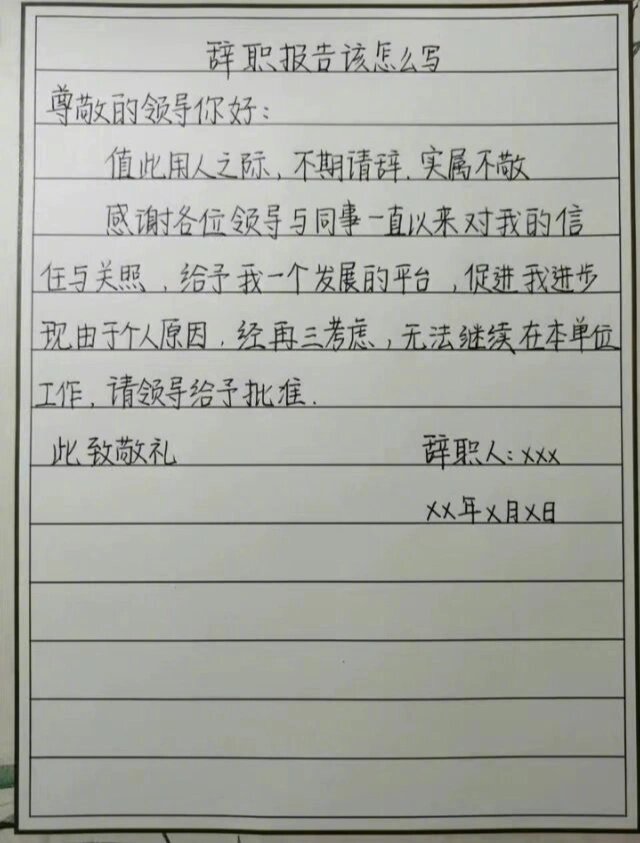 辞职报告该怎么写
尊敬的领导你好：
值此用人之际，不期请辞．实属不敬
感谢各位领导与同事一直以来对我的信
任与关照，给予我一个发展的平台，促进我进步
现由于个人原因，经再三考虑，无法继续在本单位
工作，请领导给予批准．
此致敬礼 辞职人：xxx
xx年x月x日